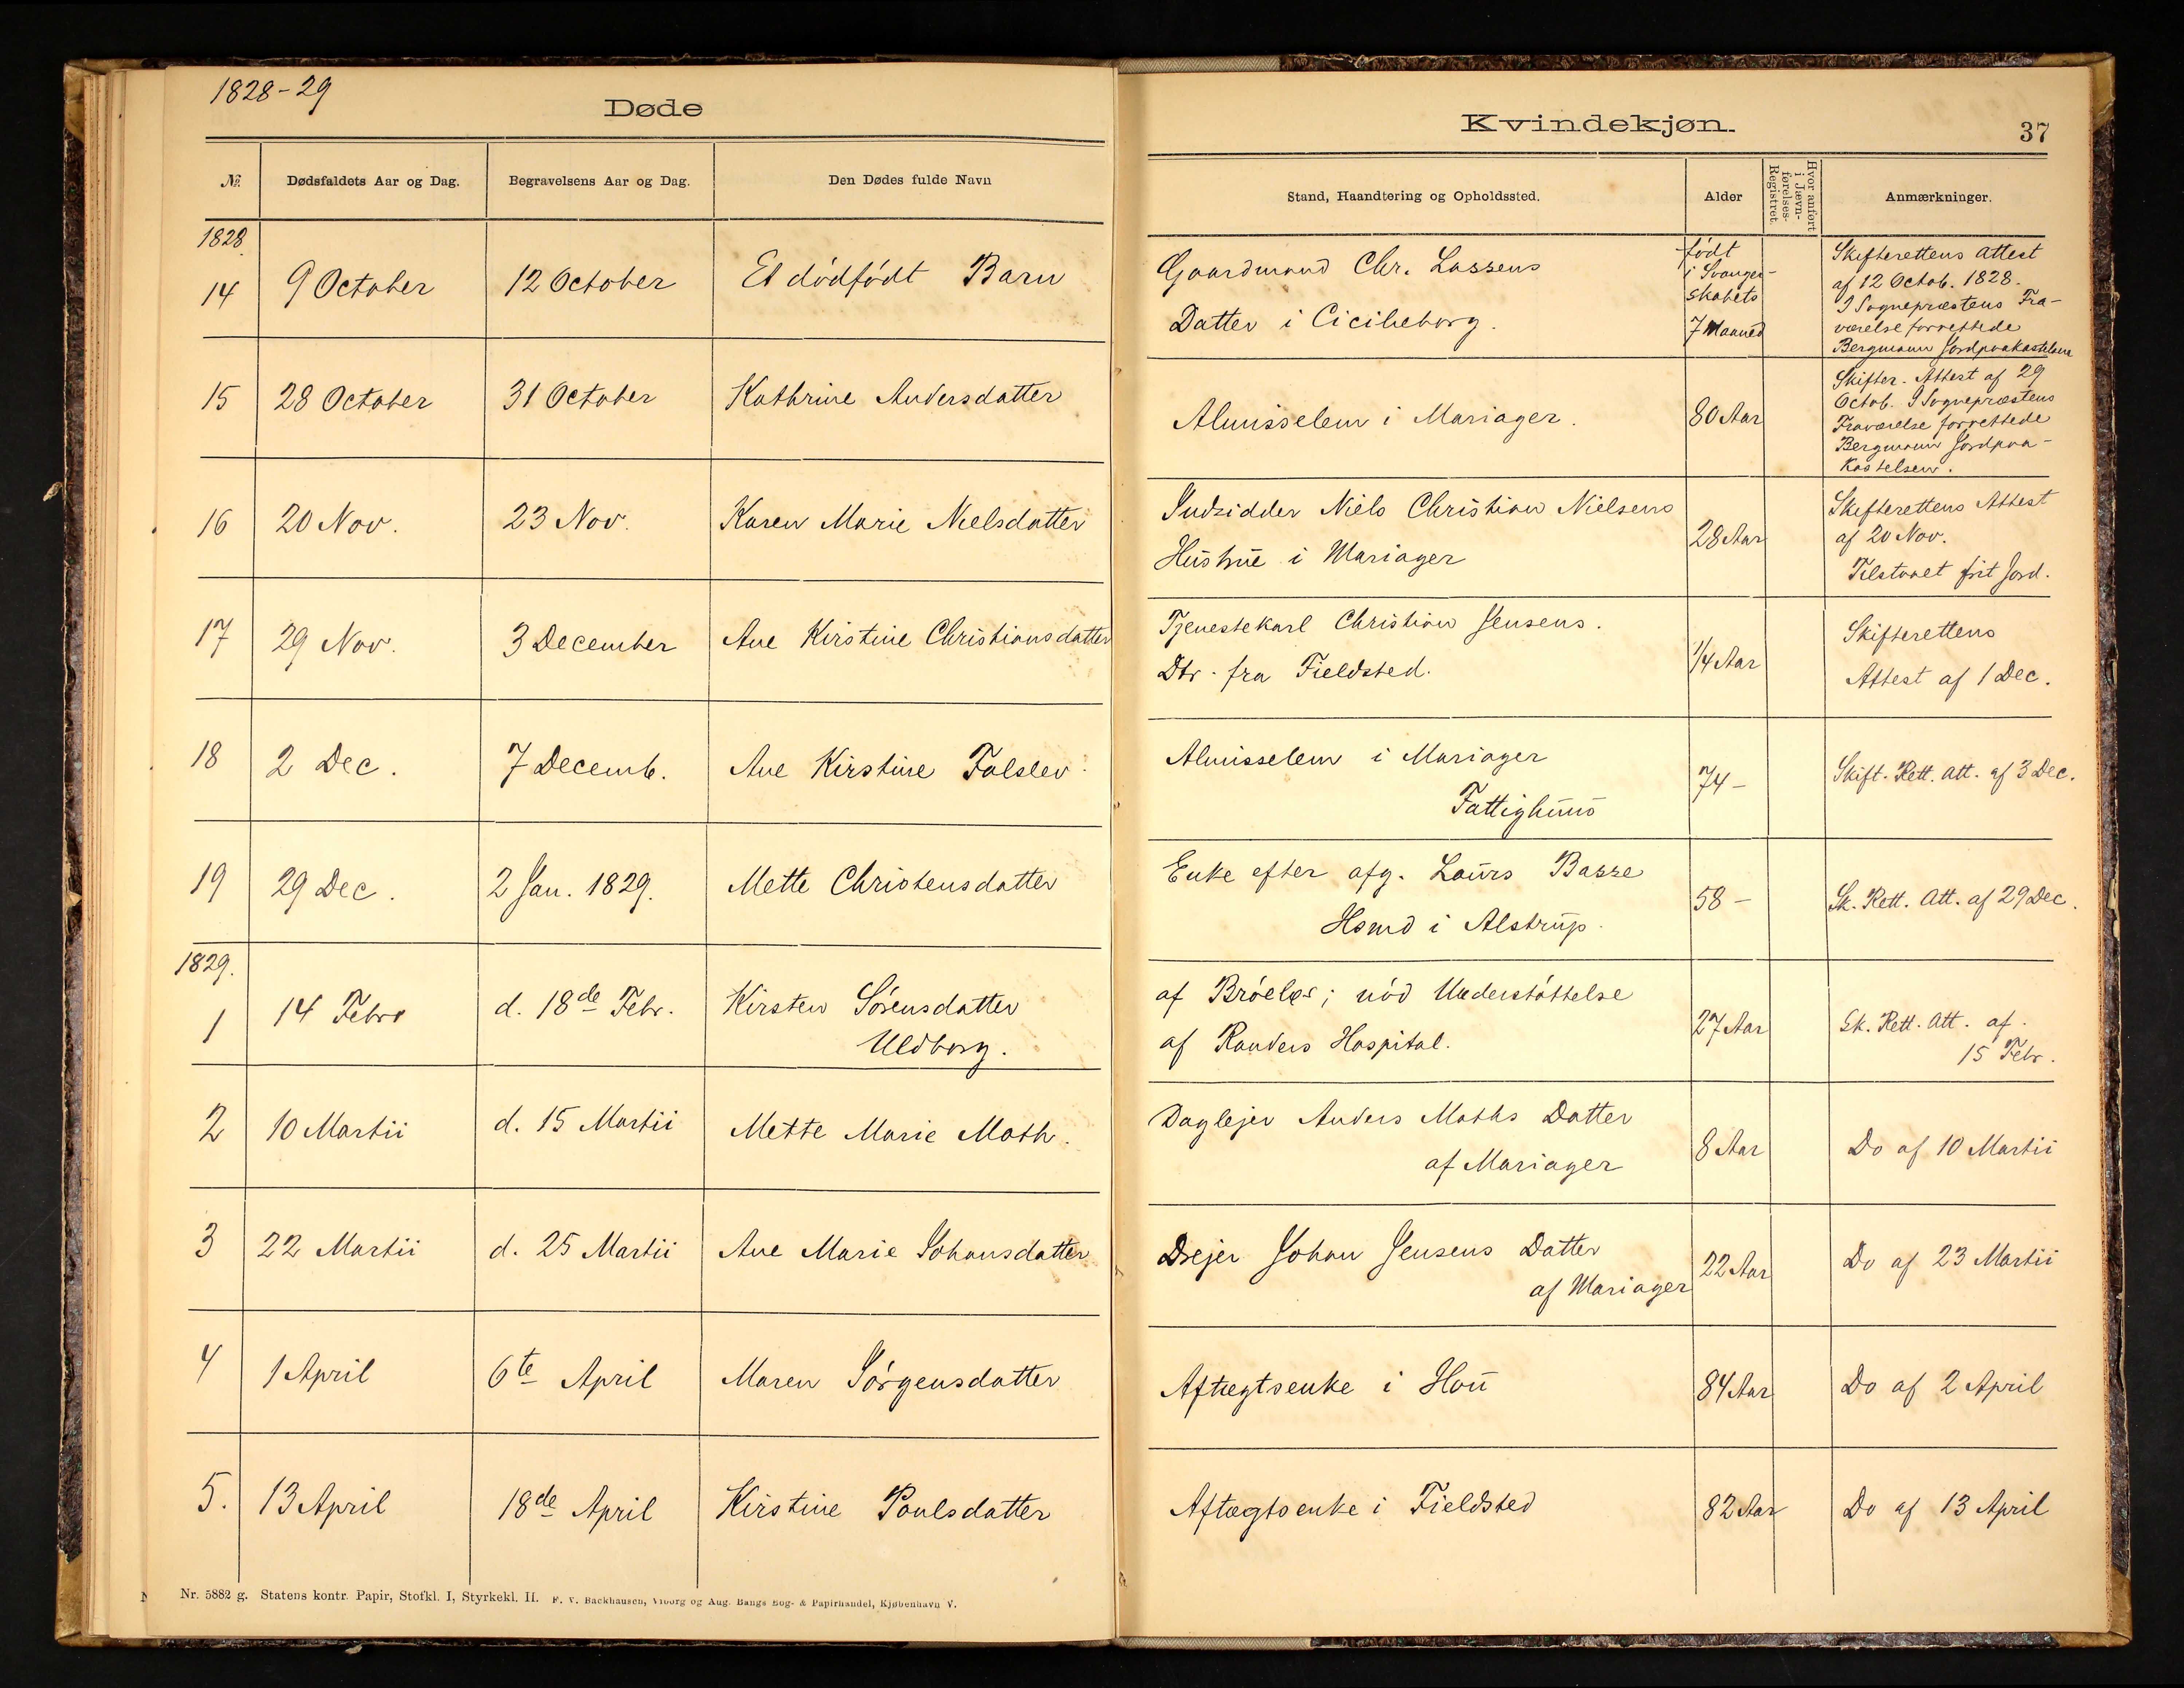 1828-29
Døde
№ Dødsfaldets Aar og Dag. Begravelsens Aar og Dag. Den Dødes fulde Navn
1828
14 9 October 12 October Et dödfödt Barn
15 28 October 31 October Kathrine Andersdatter
16 20 Nov. 23 Nov. Karen Marie Nielsdatter
17 29 Nov. 3 December Ane Kirstine Christiansdatter
18 2 Dec. 7 Decemb. Ane Kirstine Falslev
19 29 Dec. 2 Jan. 1829. Mette Christensdatter
1829.
1 14 Febr d. 18de Febr. Kirsten Sörensdatter
Uldborg.
2 10 Martii d. 15 Martii Mette Marie Moth.
3 22 Martii d. 25 Martii Ane Marie Johansdatter
4 1 April 6te April Maren Jörgensdatter
5. 13 April 18de April Kirstine Poulsdatter
Nr. 5882 g. Statens kontr. Papir, Stofkl. I, Styrkekl. II. F. V. Backhausen, Viborg og Aug. Bangs Bog- & Papirhandel, Kjøbenhavn V.
Kvindekjøn.
37
Stand, Haandtering og Opholdssted. Alder Hvor anført i Jævn-førelses-Registret. Anmærkninger.
Gaardmand Chr. Lassens
Datter i Cicilieborg.
födt
i Svanger-
skabets
7 Maaned
Skifterettens Attest
af 12 Octob. 1828.
I Sognepræstens Fra-
værelse forrettede
Bergmann Jordpaakastelsen
Almisselem i Mariager. 80 Aar
Skifter. Attest af 29
Octob. I Sognepræstens
Fraværelse forrettede
Bergmann Jordpaa-
kastelsen.
Indsidder Niels Christian Nielsens
Hustrue i Mariager
28 Aar
Skifterettens Attest
af 20 Nov.
Tilstaaet frit Jord.
Tjenestekarl Christian Jensens.
Dtr. fra Fieldsted.
1/4 Aar
Skifterettens
Attest af 1 Dec.
Almisselem i Mariager
Fattighuus
74 -
Skift. Rett. Att. af 3 Dec.
Enke efter afg. Laurs Basse
Hsmd i Alstrup.
58 -
Sk. Rett. Att. af 29 Dec.
af nöd Understöttelse
af Randers Hospital.
27 Aar
Sk. Rett. Att. af
15 Febr.
Daglejer Anders Moths Datter
af Mariager
8 Aar
Do af 10 Martii
Drejer Johan Jensens Datter
af Mariager
22 Aar
Do af 23 Martii
Aftægtsenke i Hou 84 Aar Do af 2 April
Aftægtsenke i Fieldsted 82 Aar Do af 13 April